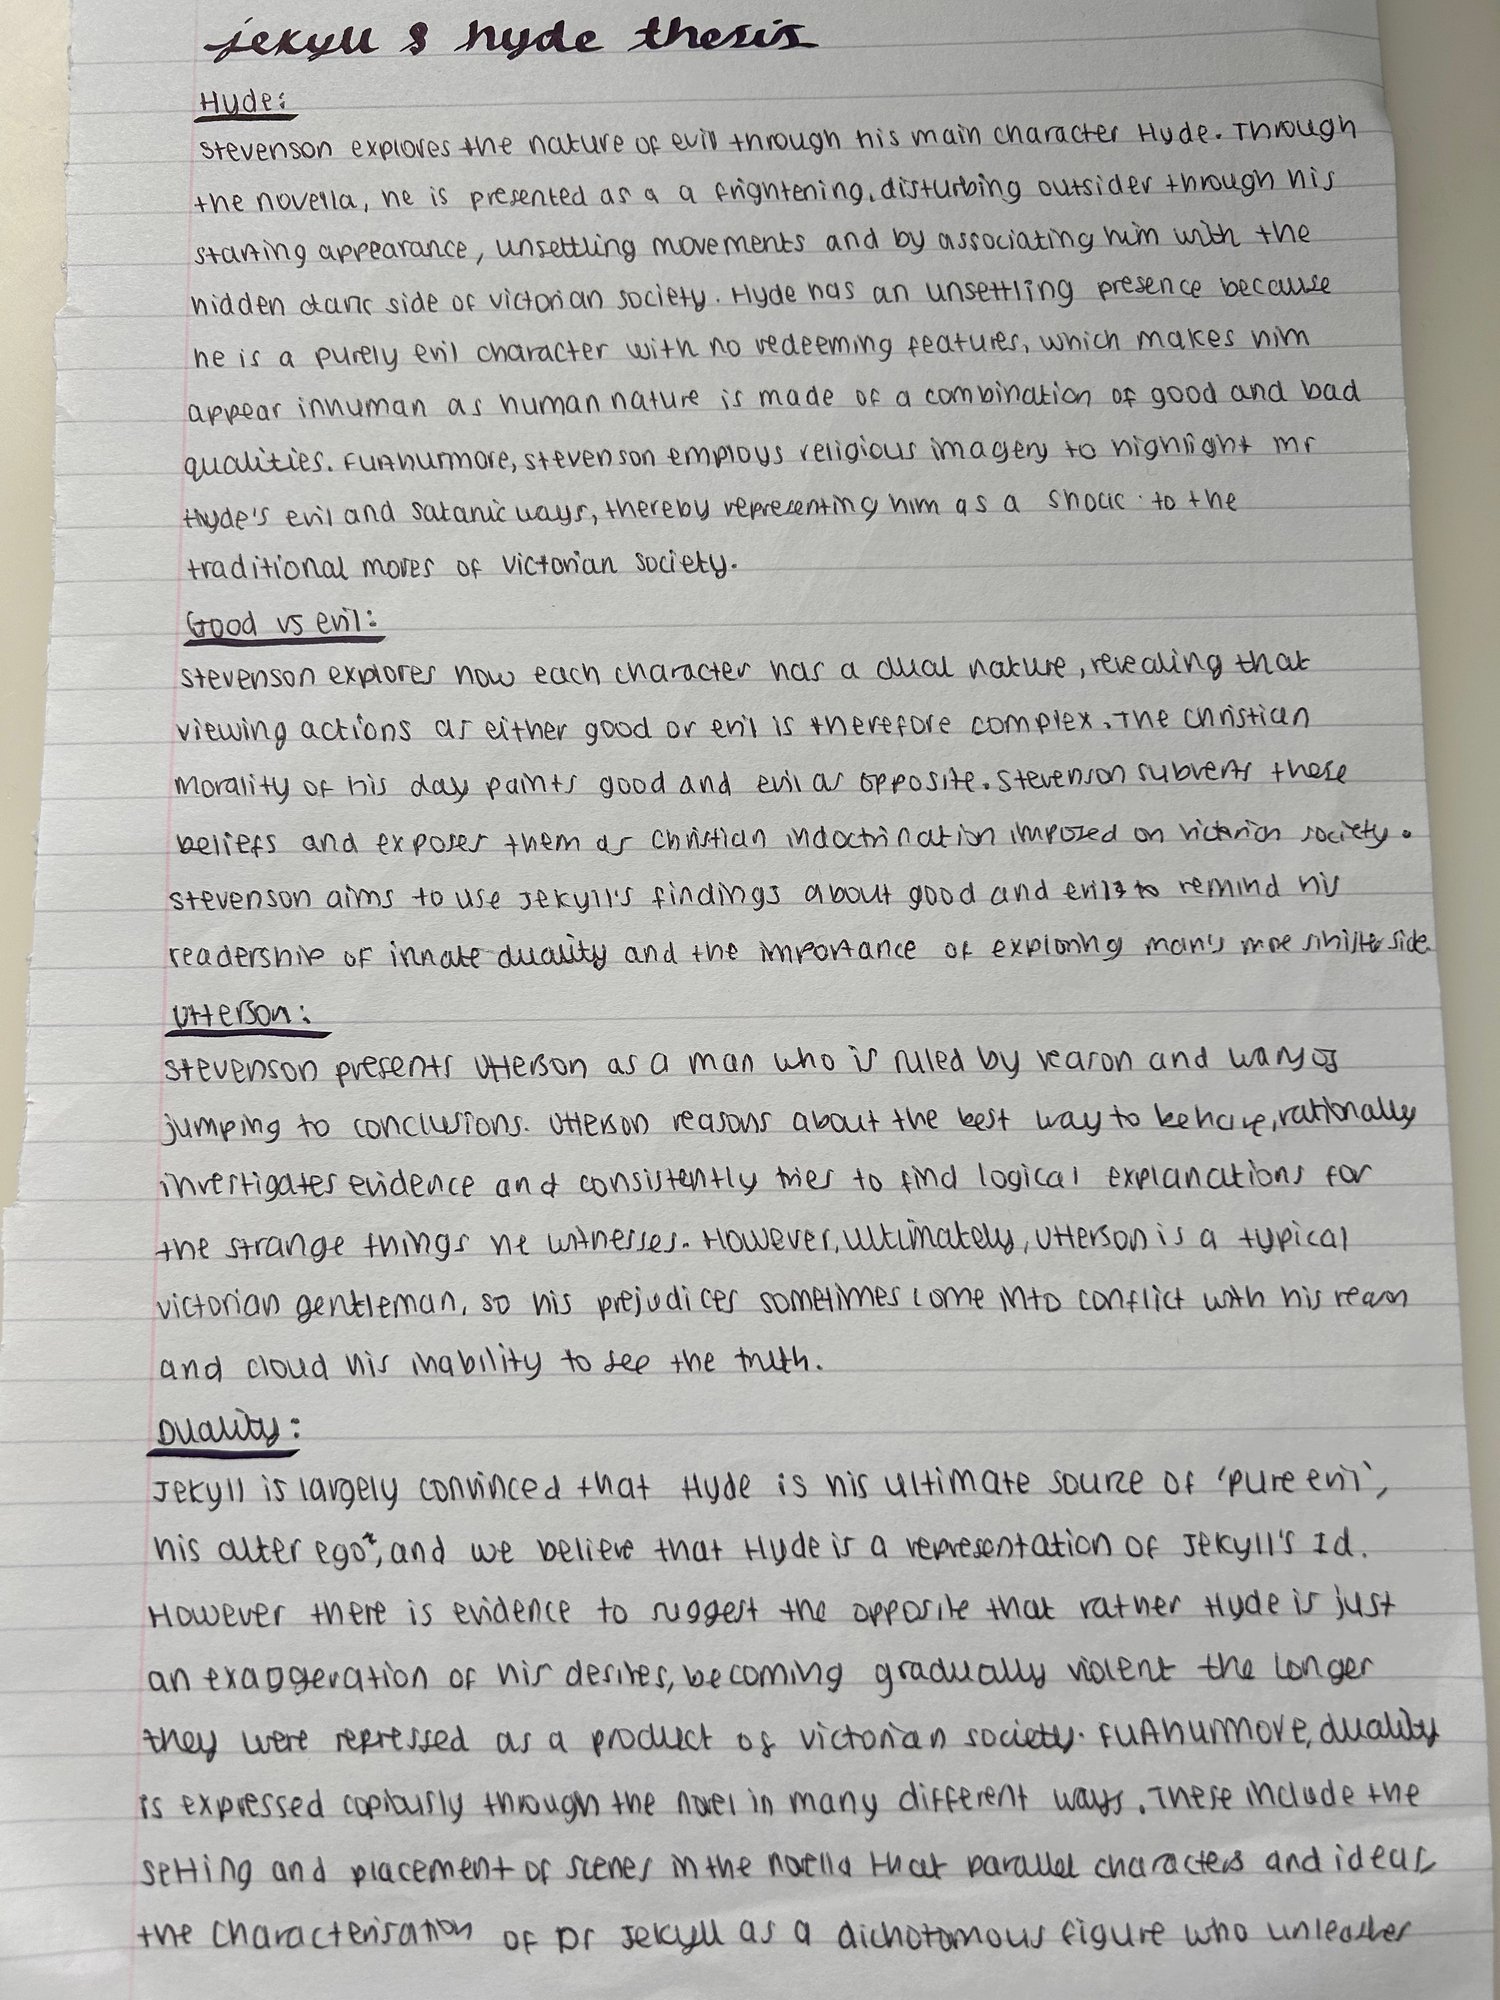 jekyll & hyde thesis
Hyde:
Stevenson explores the nature of evil through his main character Hyde. Through
the novella, he is presented as a a frightening, disturbing outsider through his
starting appearance, unsettling movements and by associating him with the
hidden dark side of victorian society. Hyde has an unsettling presence because
he is a purely evil character with no redeeming features, which makes him
appear inhuman as human nature is made of a combination of good and bad
qualities. Furthurmore, Stevenson employs religious imagery to highlight mr
Hyde's evil and satanic ways, thereby representing him as a shock to the
traditional mores of victorian society.
Good vs evil:
Stevenson explores how each character has a dual nature, revealing that
viewing actions as either good or evil is therefore complex. The christian
morality of his day paints good and evil as opposite. Stevenson subverts these
beliefs and exposes them as christian indoctrination imposed on victorian society.
Stevenson aims to use Jekyll's findings about good and evil to remind his
readership of innate duality and the importance of exploring man's more sinister side.
Utterson:
Stevenson presents Utterson as a man who is ruled by reason and wary of
jumping to conclusions. Utterson reasons about the best way to behave, rationally
investigates evidence and consistently tries to find logical explanations for
the strange things he witnesses. However, ultimately, Utterson is a typical
victorian gentleman, so his prejudices sometimes come into conflict with his reason
and cloud his inability to see the truth.
Duality:
Jekyll is largely convinced that Hyde is his ultimate source of 'pure evil',
his alter ego, and we believe that Hyde is a representation of Jekyll's Id.
However there is evidence to suggest the opposite that rather Hyde is just
an exaggeration of his desires, becoming gradually violent the longer
they were repressed as a product of victorian society. Furthurmore, duality
is expressed copiously through the novel in many different ways. These include the
setting and placement of scenes in the novella that parallel characters and ideas,
the characterisation of Dr Jekyll as a dichotomous figure who unleashes